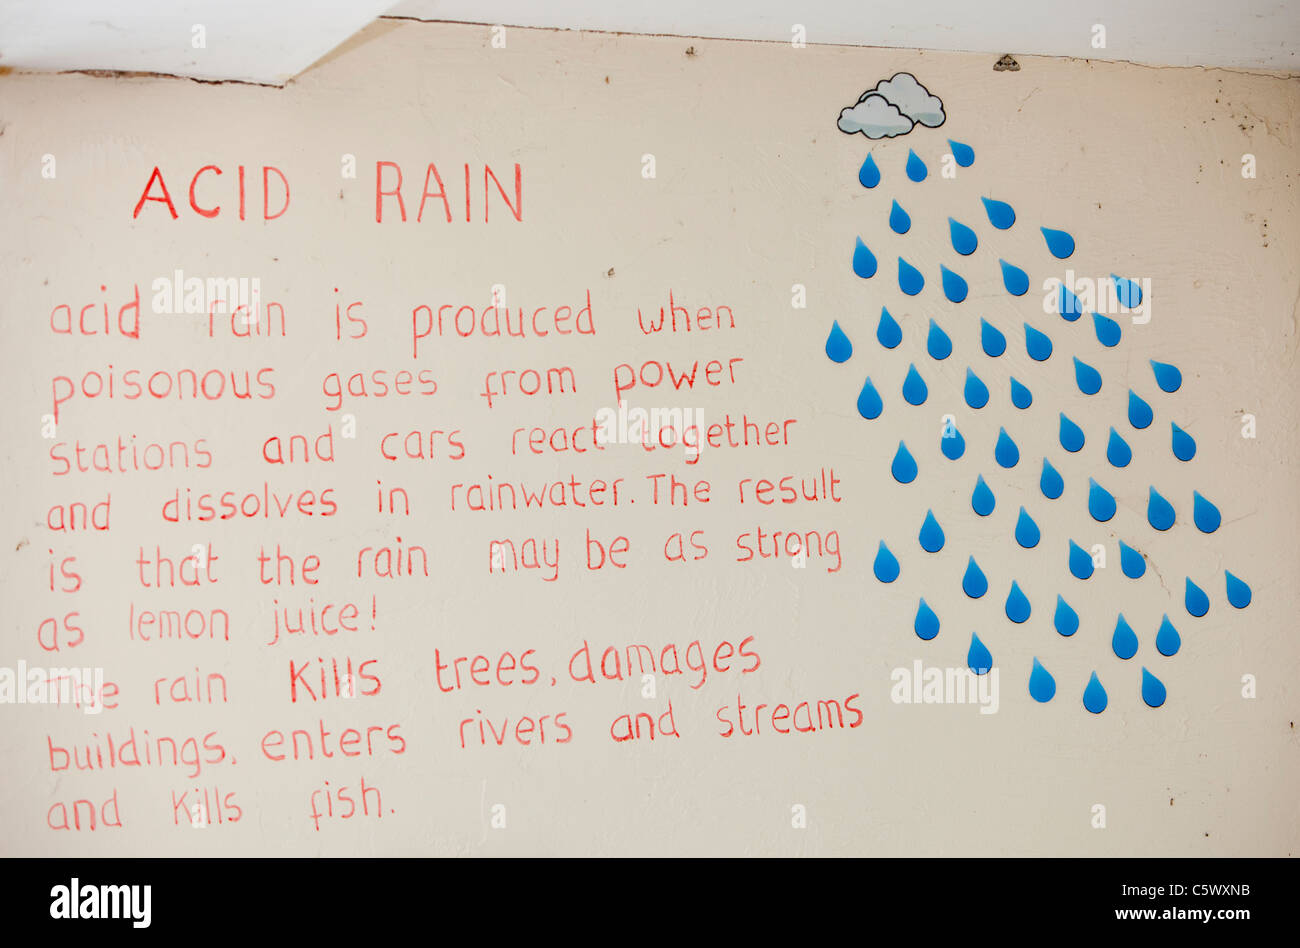 ACID RAIN
acid rain is produced when
poisonous gases from power
stations and cars react together
and dissolves in rainwater. The result
is that the rain may be as strong
as lemon juice!
The rain kills trees, damages
buildings, enters rivers and streams
and kills fish.
alamy
alamy
alamy
alamy
a alamy stock photo
C5WXNB
www.alamy.com